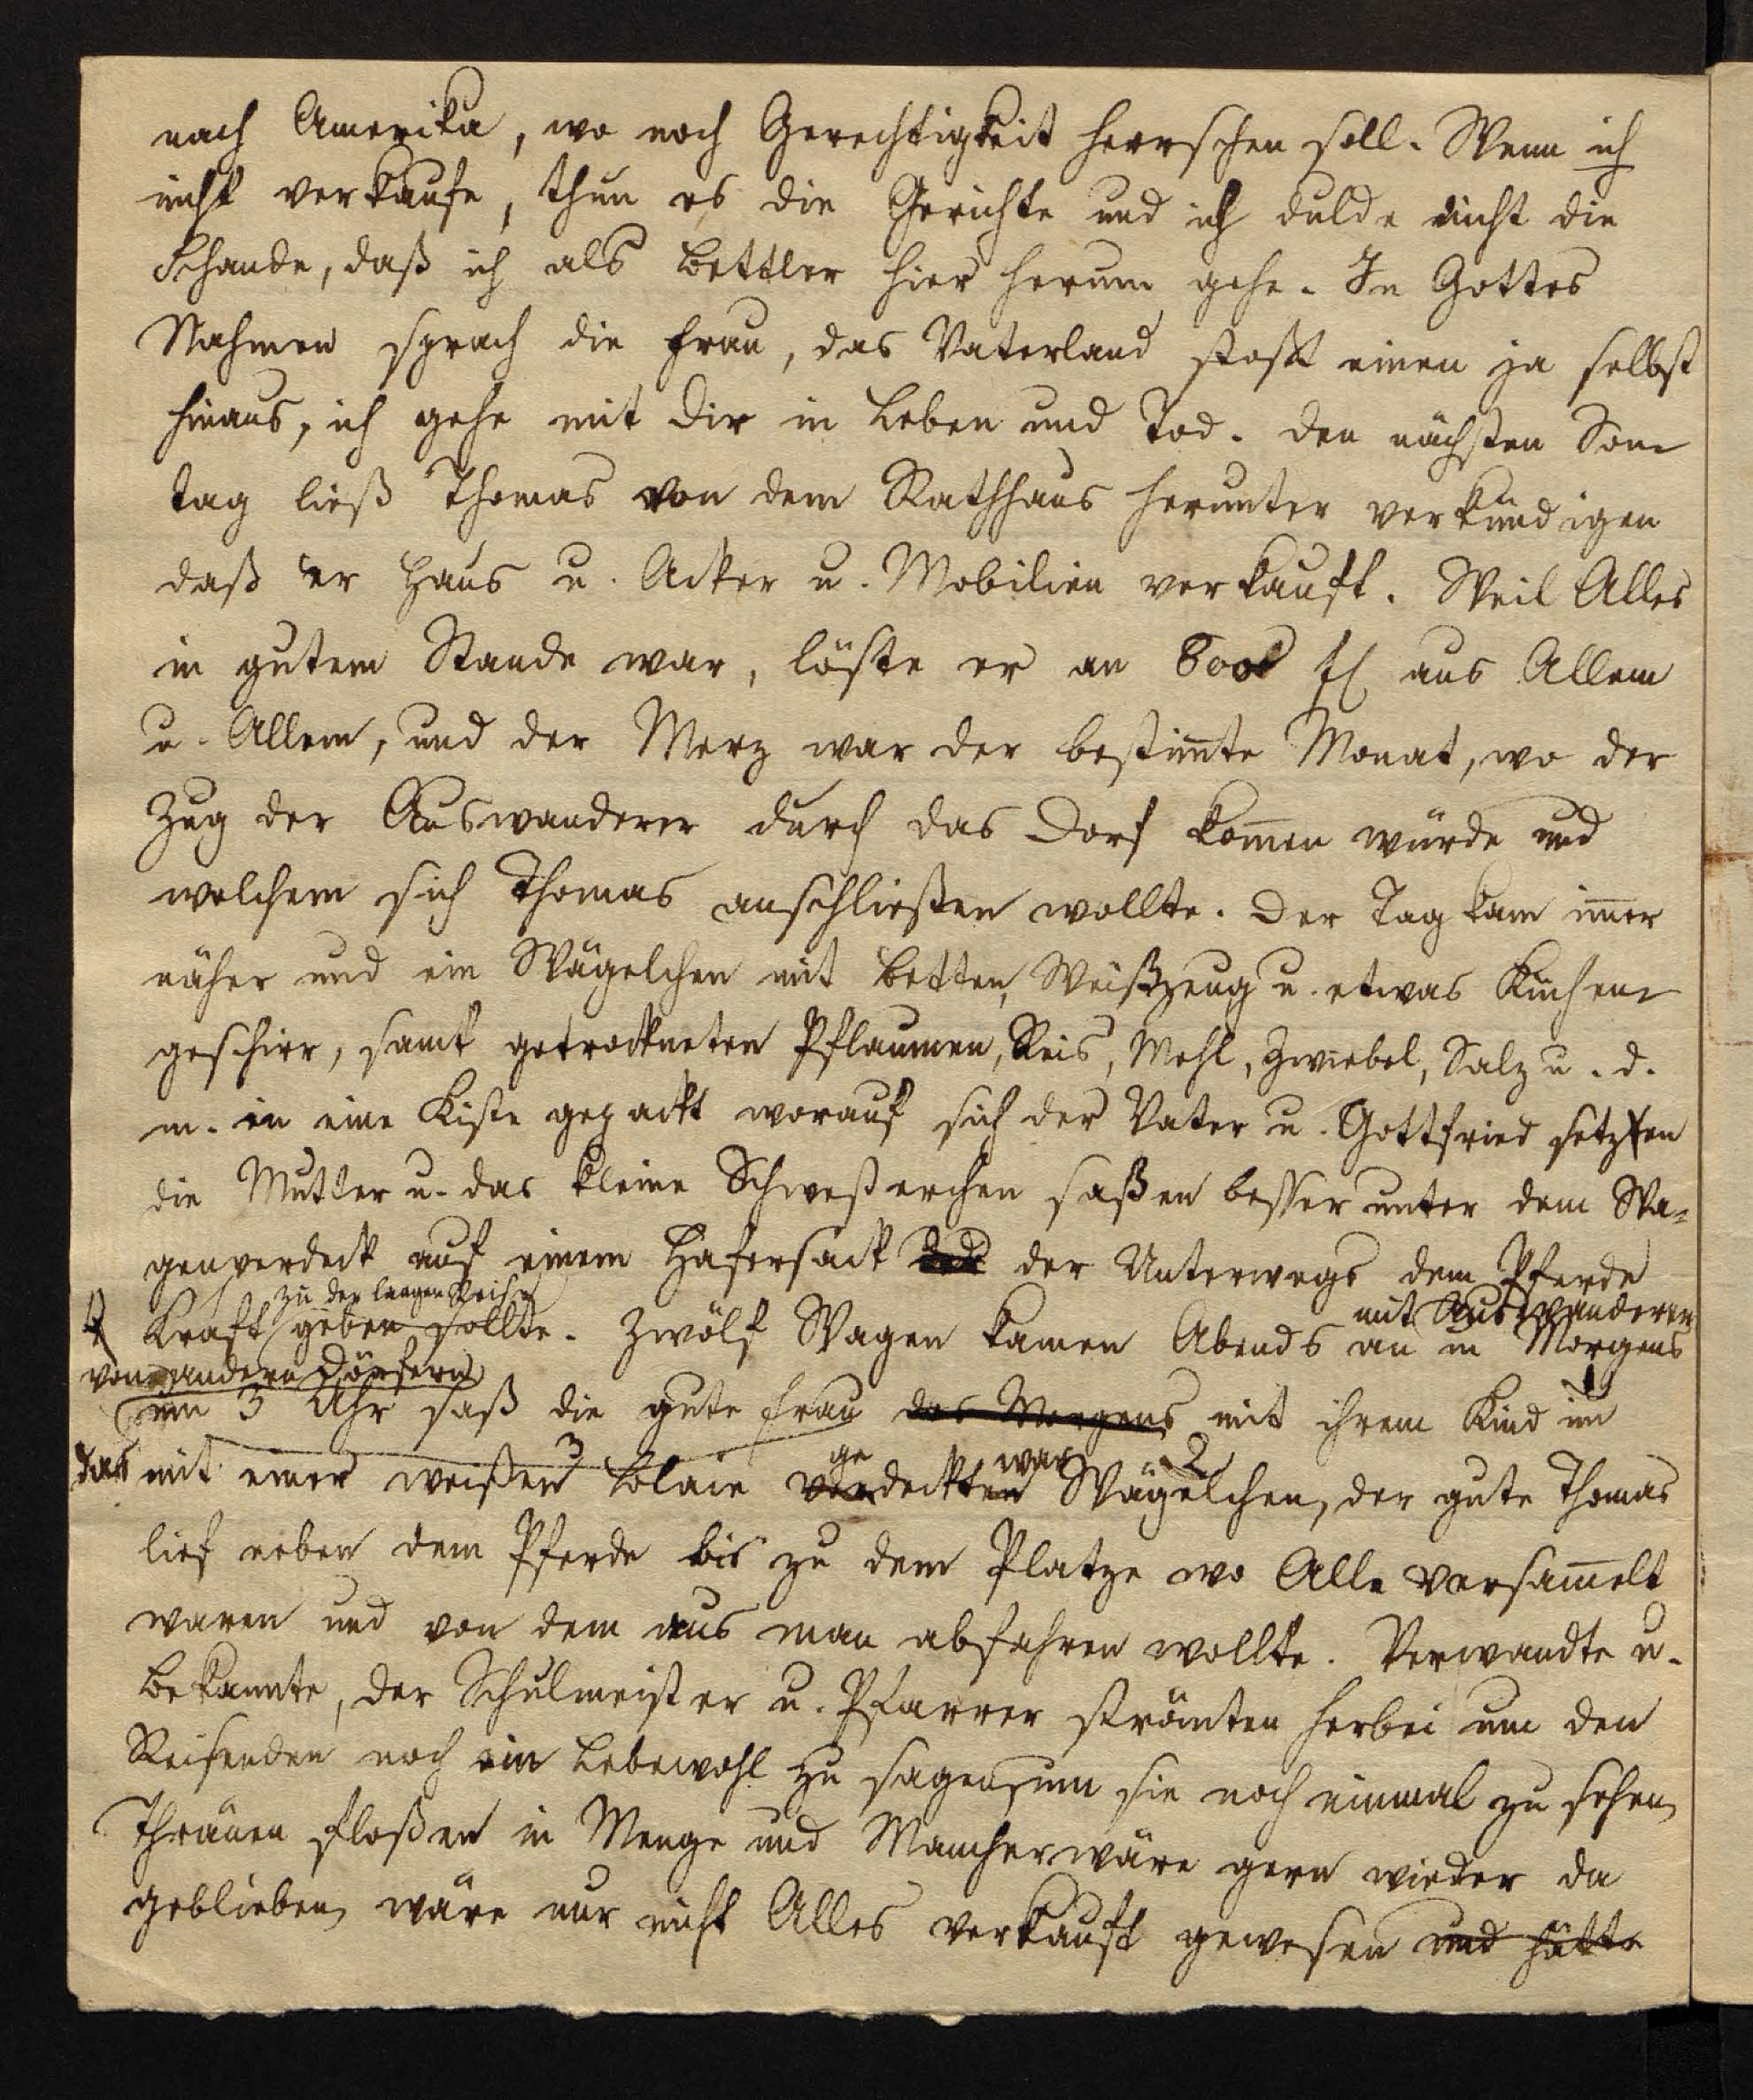 nach Amerika, wo noch Gerechtigkeit herrschen soll. Wenn ich
nicht verkaufe, thun es die Gerichte und ich dulde nicht die
Schande, daß ich als Bettler hier herum gehe. In Gottes
Nahmen sprach die Frau, das Vaterland stoßt einen ja selbst
hinaus, ich gehe mit dir in Leben und Tod. Den nächsten Son
tag ließ Thomas von dem Rathhaus herunter verkündigen
daß er Haus u. Acker u. Mobilien verkauft. Weil Alles
in gutem Stande war, löste er an 800 fl aus Allem
u. Allem, und der Merz war der bestim̅te Monat, wo der
Zug der Auswanderer durch das Dorf kom̅en würde und
welchem sich Thomas anschließen wollte. Der Tag kam im̅er
näher und ein Wägelchen mit Betten, Weißzeug u. etwas Küchen
geschirr, samt getrockneten Pflaumen, Reis, Mehl, Zwiebel, Salz u. d.
m. in eine Kiste gepackt worauf sich der Vater u. Gottfried setzten
die Mutter u. das kleine Schwesterchen saßen besser unter dem Wa=
genverdeck auf einem Hafersack der Unterwegs dem Pferde
zu der langen Reise
Kraft geben sollte. Zwölf Wagen kamen Abends an in Morgens
mit Auswanderern
von andern Dörfern
um 3 Uhr saß die gute Frau des Morgens mit ihrem Kind im
das mit einer weißen 3 Blaie verdeckten Wägelchen, der gute Thomas
ge war 2
lief neben dem Pferde bis zu dem Platze wo Alle versam̅elt
waren und von dem aus man abfahren wollte. Verwandte u.
Bekannte, der Schulmeister u. Pfarrer strömten herbei um den
Reisenden noch ein Lebewohl zu sagen, um sie noch einmal zu sehen,
Thränen floßen in Menge und Mancher wäre gern wieder da
geblieben, wäre nur nicht Alles verkauft gewesen und hätte